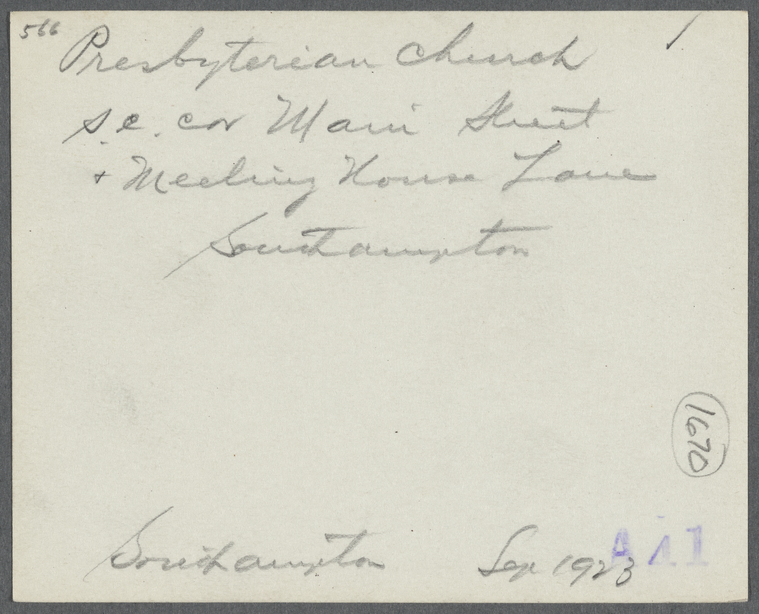 566
Presbyterian Church
s.e. cor Main Street
+ Meeting House Lane
Southampton
1670
Southampton Sep 1923 A 41